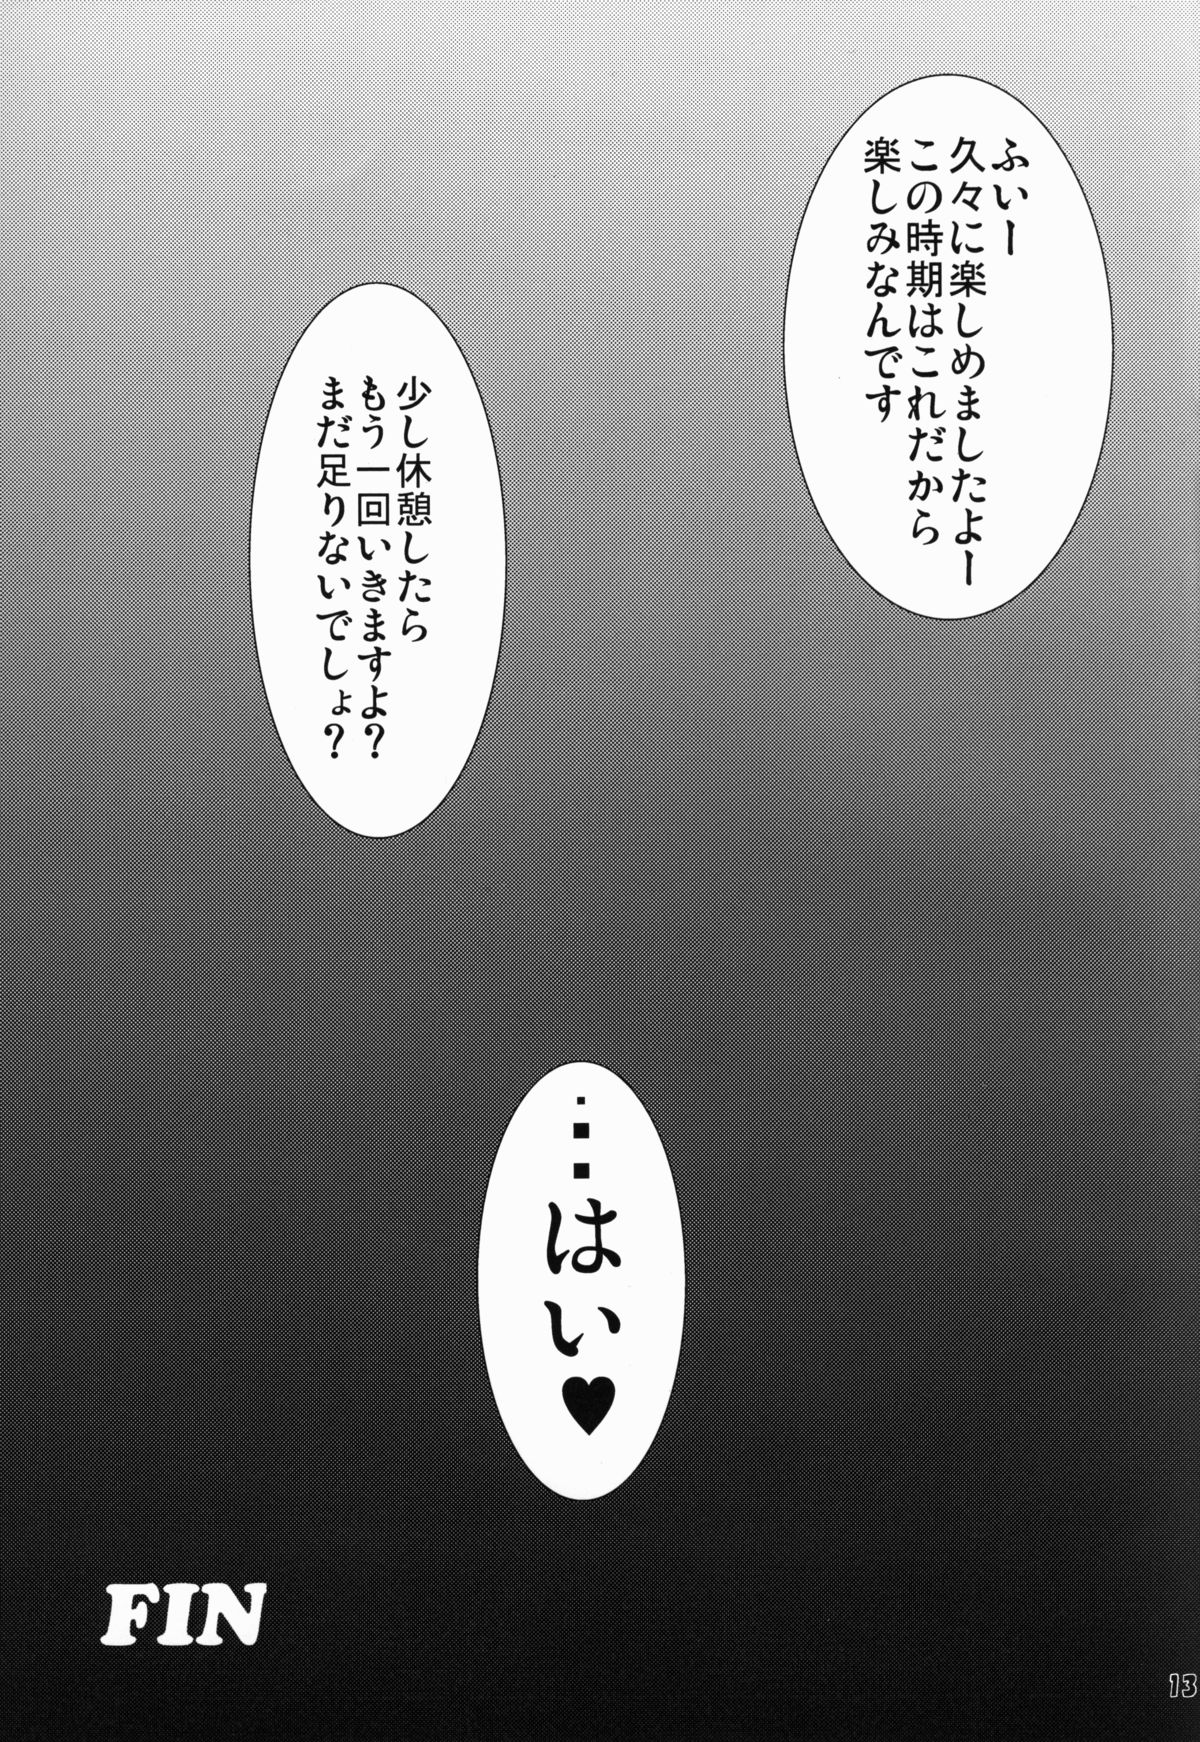 ふいー
久々に楽しめましたよー
この時期はこれだから
楽しみなんです
少し休憩したら
もう一回いきますよ？
まだ足りないでしょ？
・・・はい♥
FIN
13